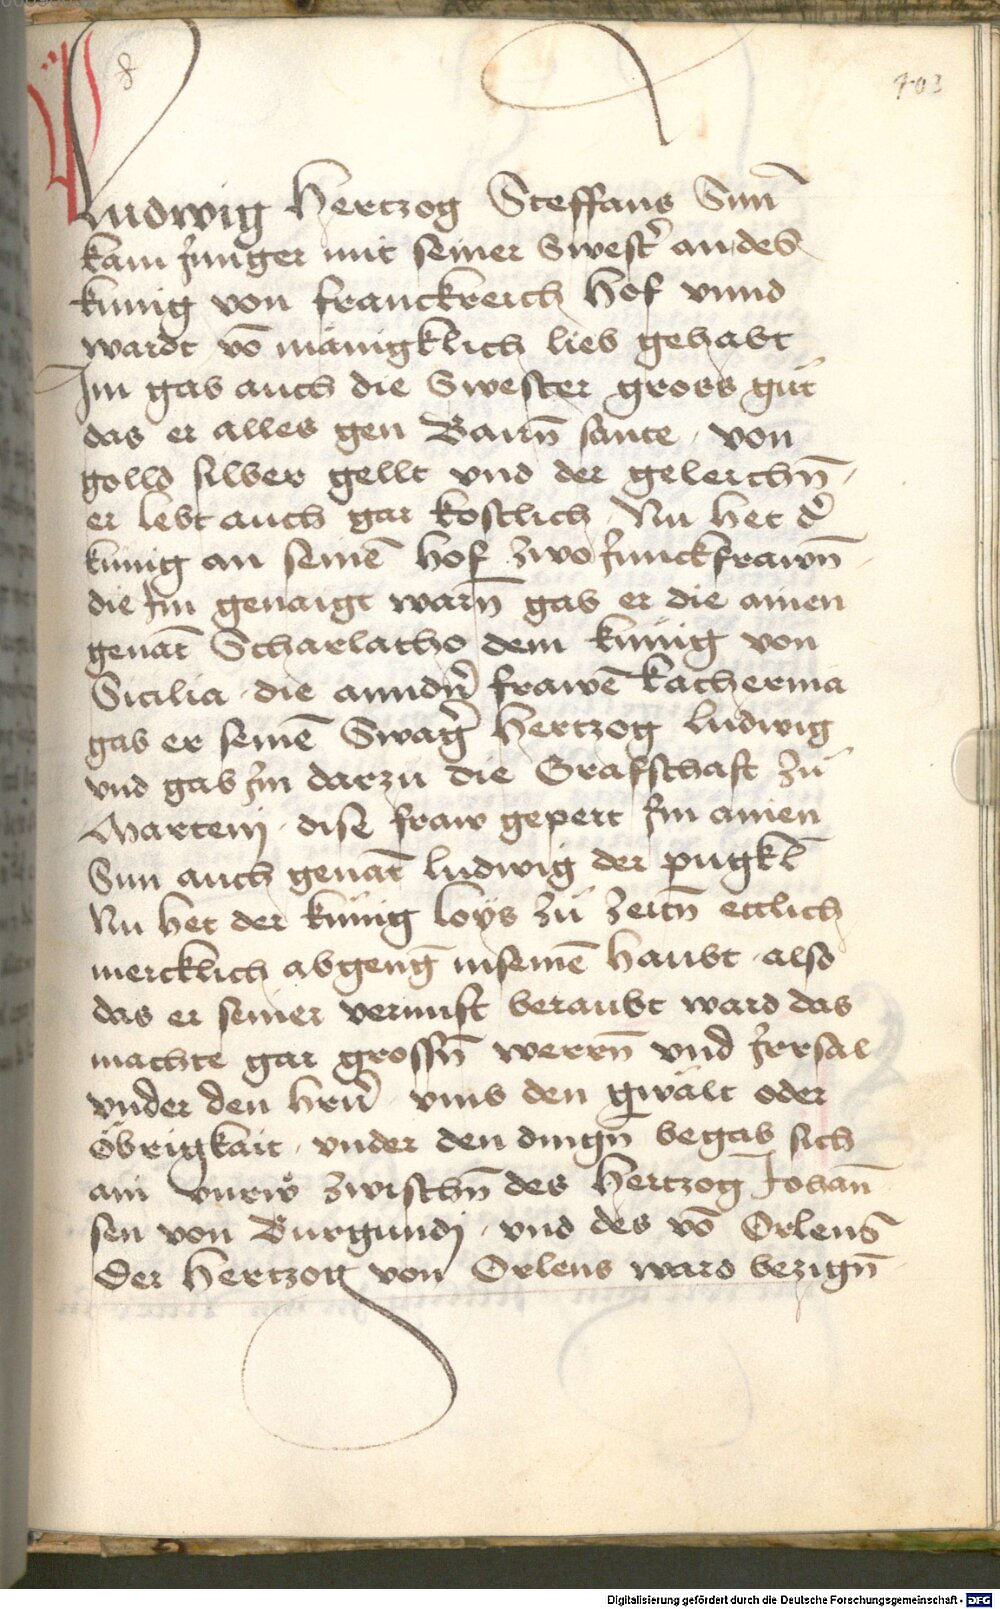 8
403
Ludwig Hertzog Steffans Sun̄
kam Junger mit seiner Swest̄ an des
kunig von franckreich Hof vnnd
wardt vō mänigklich lieb gehabt
Im gab auch die Swester gross gůt
das er alles gen Bairn̄ sante . von
golld silber gellt vnd der geleichn̄ .
er lebt auch gar kostlich . Nu het d̄
kunig an seinē hof zwo Junckfrawn̄
die Im genaigt warn̄ gab er die ainen
genāt Scharlatho dem kunig von
Sicilia . die anndn̄ frawē katherina
gab er seinē Swaḡ Hertzog Ludwig
vnd gab Im darzu die Grafschaft zů
Martenj . dise fraw gepert Im ainen
Sun auch genāt Ludwig der pugkl̄
Nu het der kunig Loÿs zů zeitn̄ ettlich
mercklich abgenḡ in seinē haubt . also
das er seiner vernuft beraubt ward das
machte gar grossn̄ werrn̄ vnd Irrsal
vnder den hrn̄ . vmb den gwält oder
öbrigkait . vnder den dingn̄ begab sich
ain vnrẘ zwischn̄ des Hertzog Johan̄
sen von Burgundj . vnd des vō Orlens
Der Hertzog von Orlens ward bezign̄
Digitalisierung gefördert durch die Deutsche Forschungsgemeinschaft - DFG